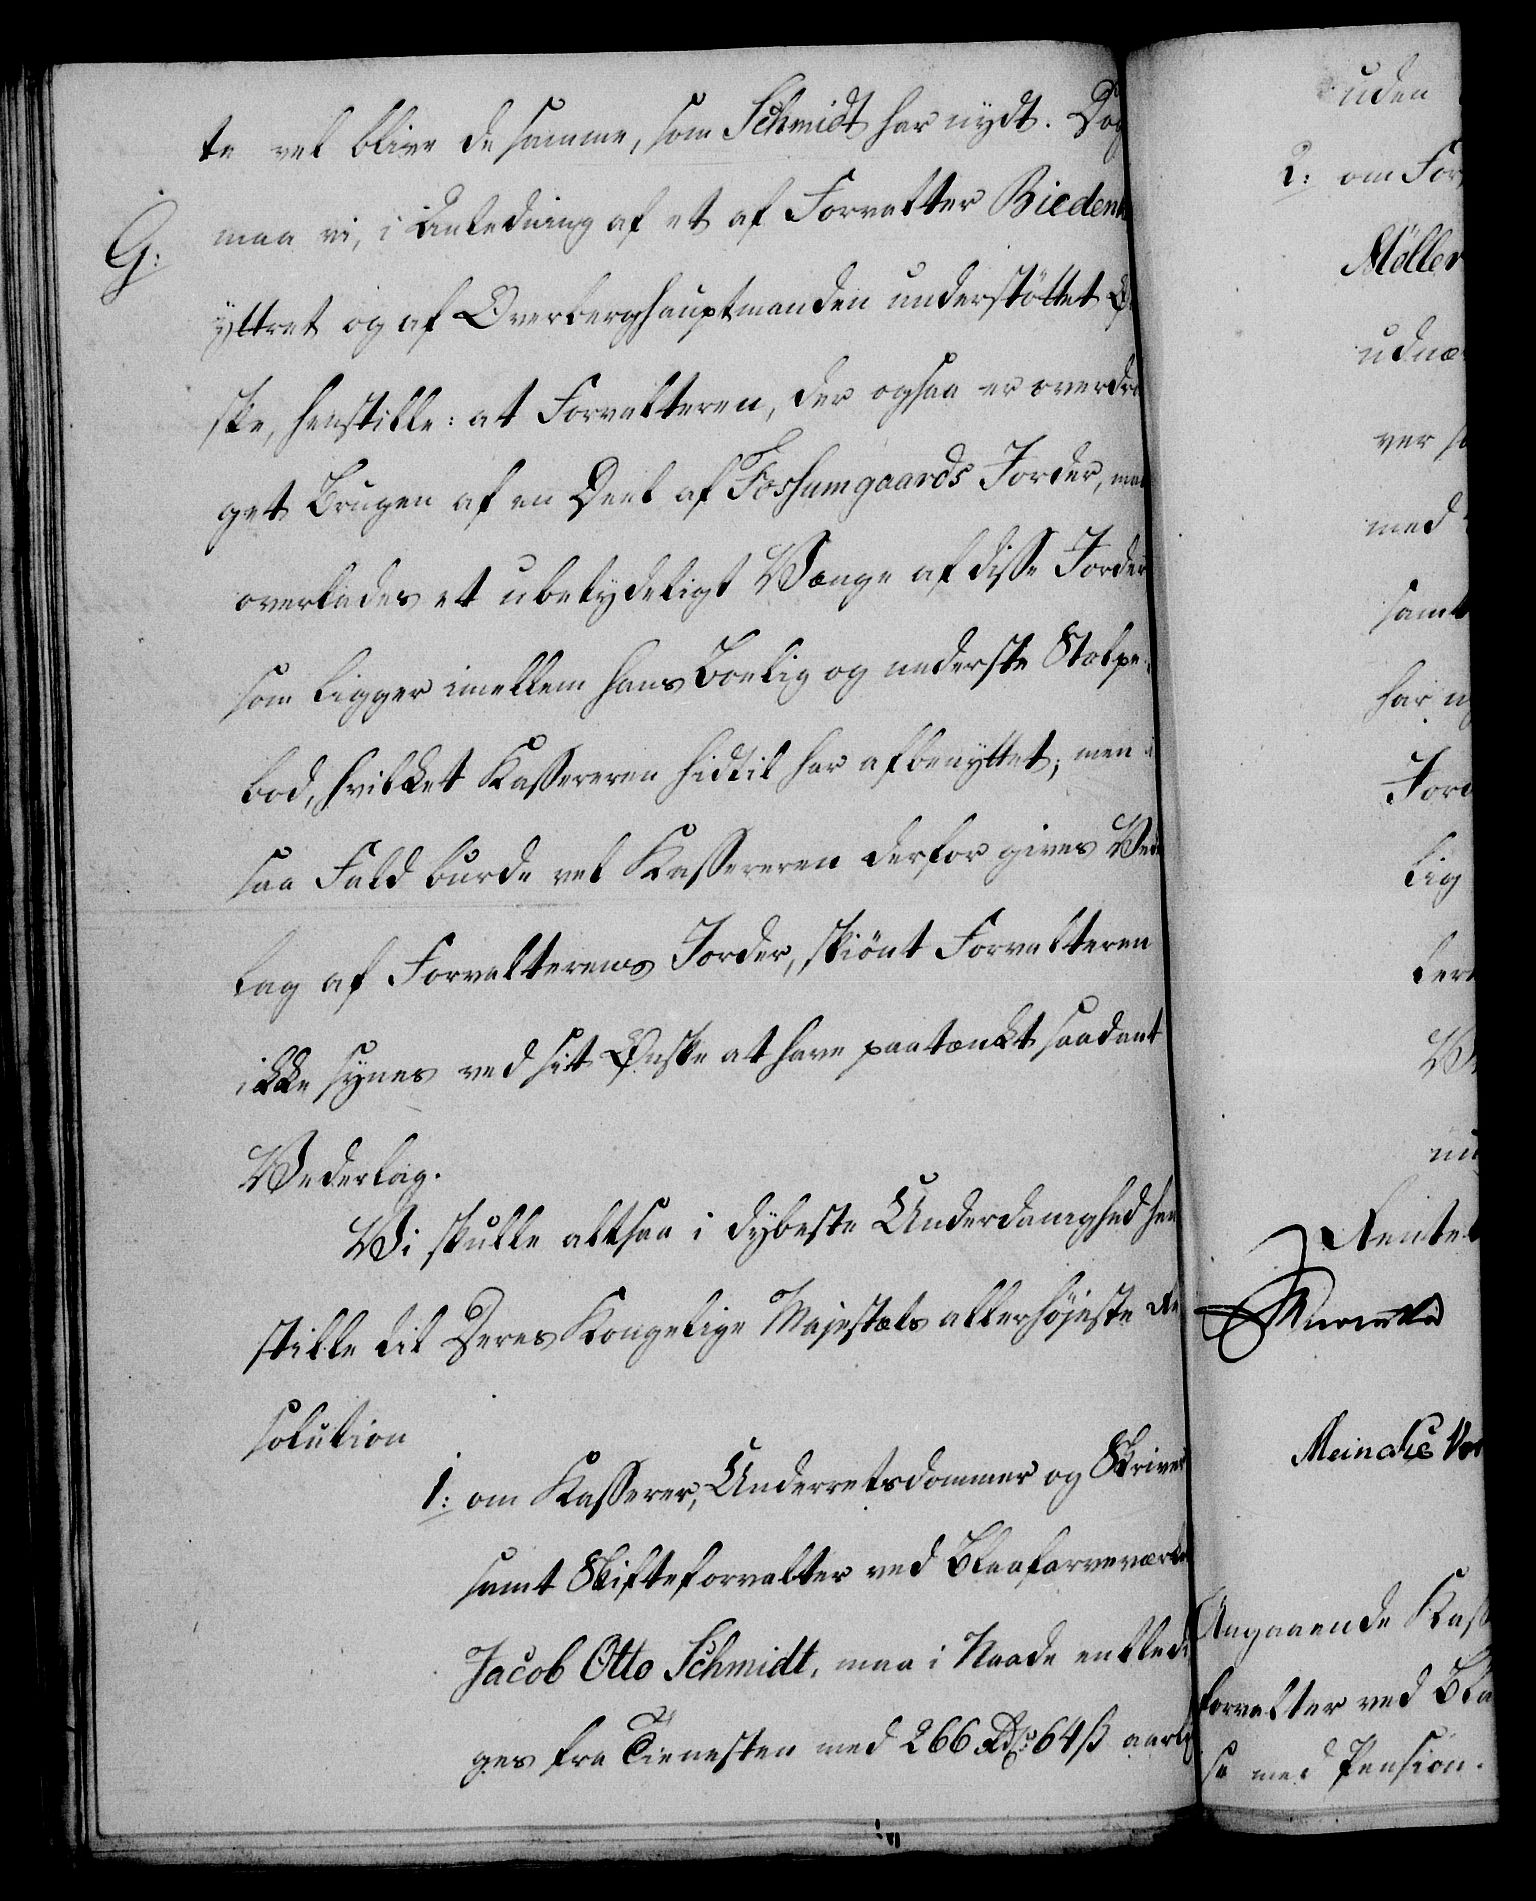 te vel bliver de samme, som Schmidt har nydt. Dog
G: maa vi, i Anledning af et af Forvalter Biedenk
yttret og af Overberghauptmanden understöttet Øn
ske, henstille: at Forvalteren, der ogsaa er overdra
get Brugen af en Deel af Fossumgaards Jorder, maa
overlades et ubetydeligt Vænge af disse Jorder
som ligger imellem hans Boelig og nederste Stolpe-
bod, hvilket Kassereren hidtil har afbenyttet; men i
saa Fald burde vel Kassereren derfor gives Veder
lag af Forvalterens Jorder, skiönt Forvalteren
ikke synes ved sit Ønske at have paatænkt saadant
Vederlag.
Vi skulle altsaa i dybeste Underdanighed hen
stille til Deres Kongelige Majestæts allerhöjeste Re
solution
1: om Kasserer, Underretsdommer og Skriver
samt Skifteforvalter ved Blaafarveværket
Jacob Otto Schmidt, maa i Naade entledi
ges fra Tienesten med 266 Rdr 64 ß aarlig
uden
2: om For
Møller
udnæ
ver s
med
samt
har n
Jord
lig
ler
Ve
nu
Rentek
Meincke
Angaaende Kass
forvalter ved Bla
se med Pension.